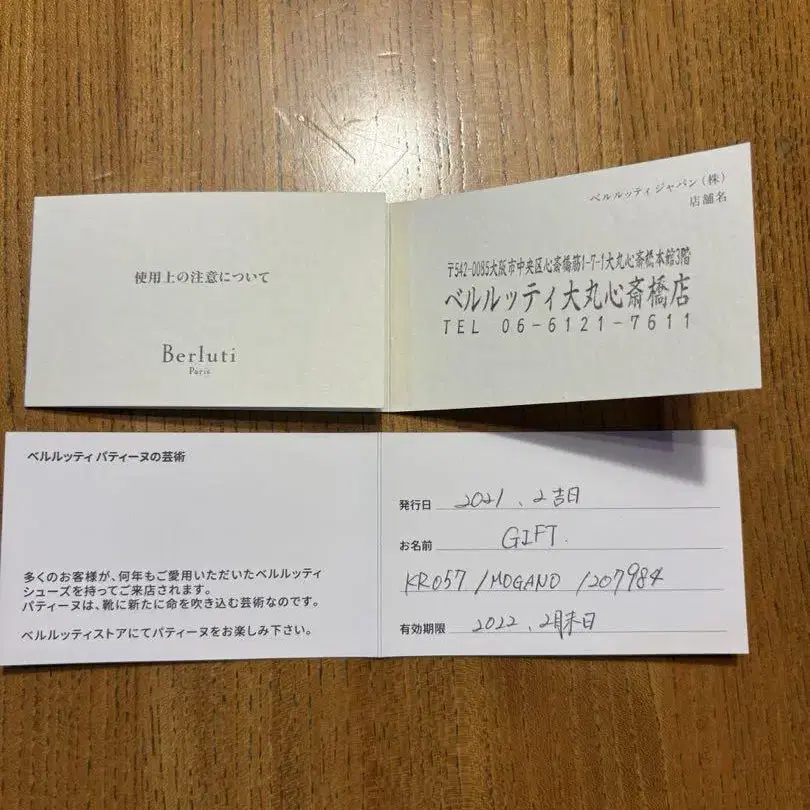 使用上の注意について
Berluti
Paris
ベルルッティ ジャパン(株)
店舗名
〒542-0085大阪市中央区心斎橋筋1-7-1大丸心斎橋本館3階
ベルルッティ大丸心斎橋店
TEL 06-6121-7611
ベルルッティ パティーヌの芸術
多くのお客様が、何年もご愛用いただいたベルルッティ
シューズを持ってご来店されます。
パティーヌは、靴に新たに命を吹き込む芸術なのです。
ベルルッティストアにてパティーヌをお楽しみ下さい。
発行日 2021、2吉日
お名前 GIFT.
KR057/MOGANO/207984
有効期限 2022、2月末日